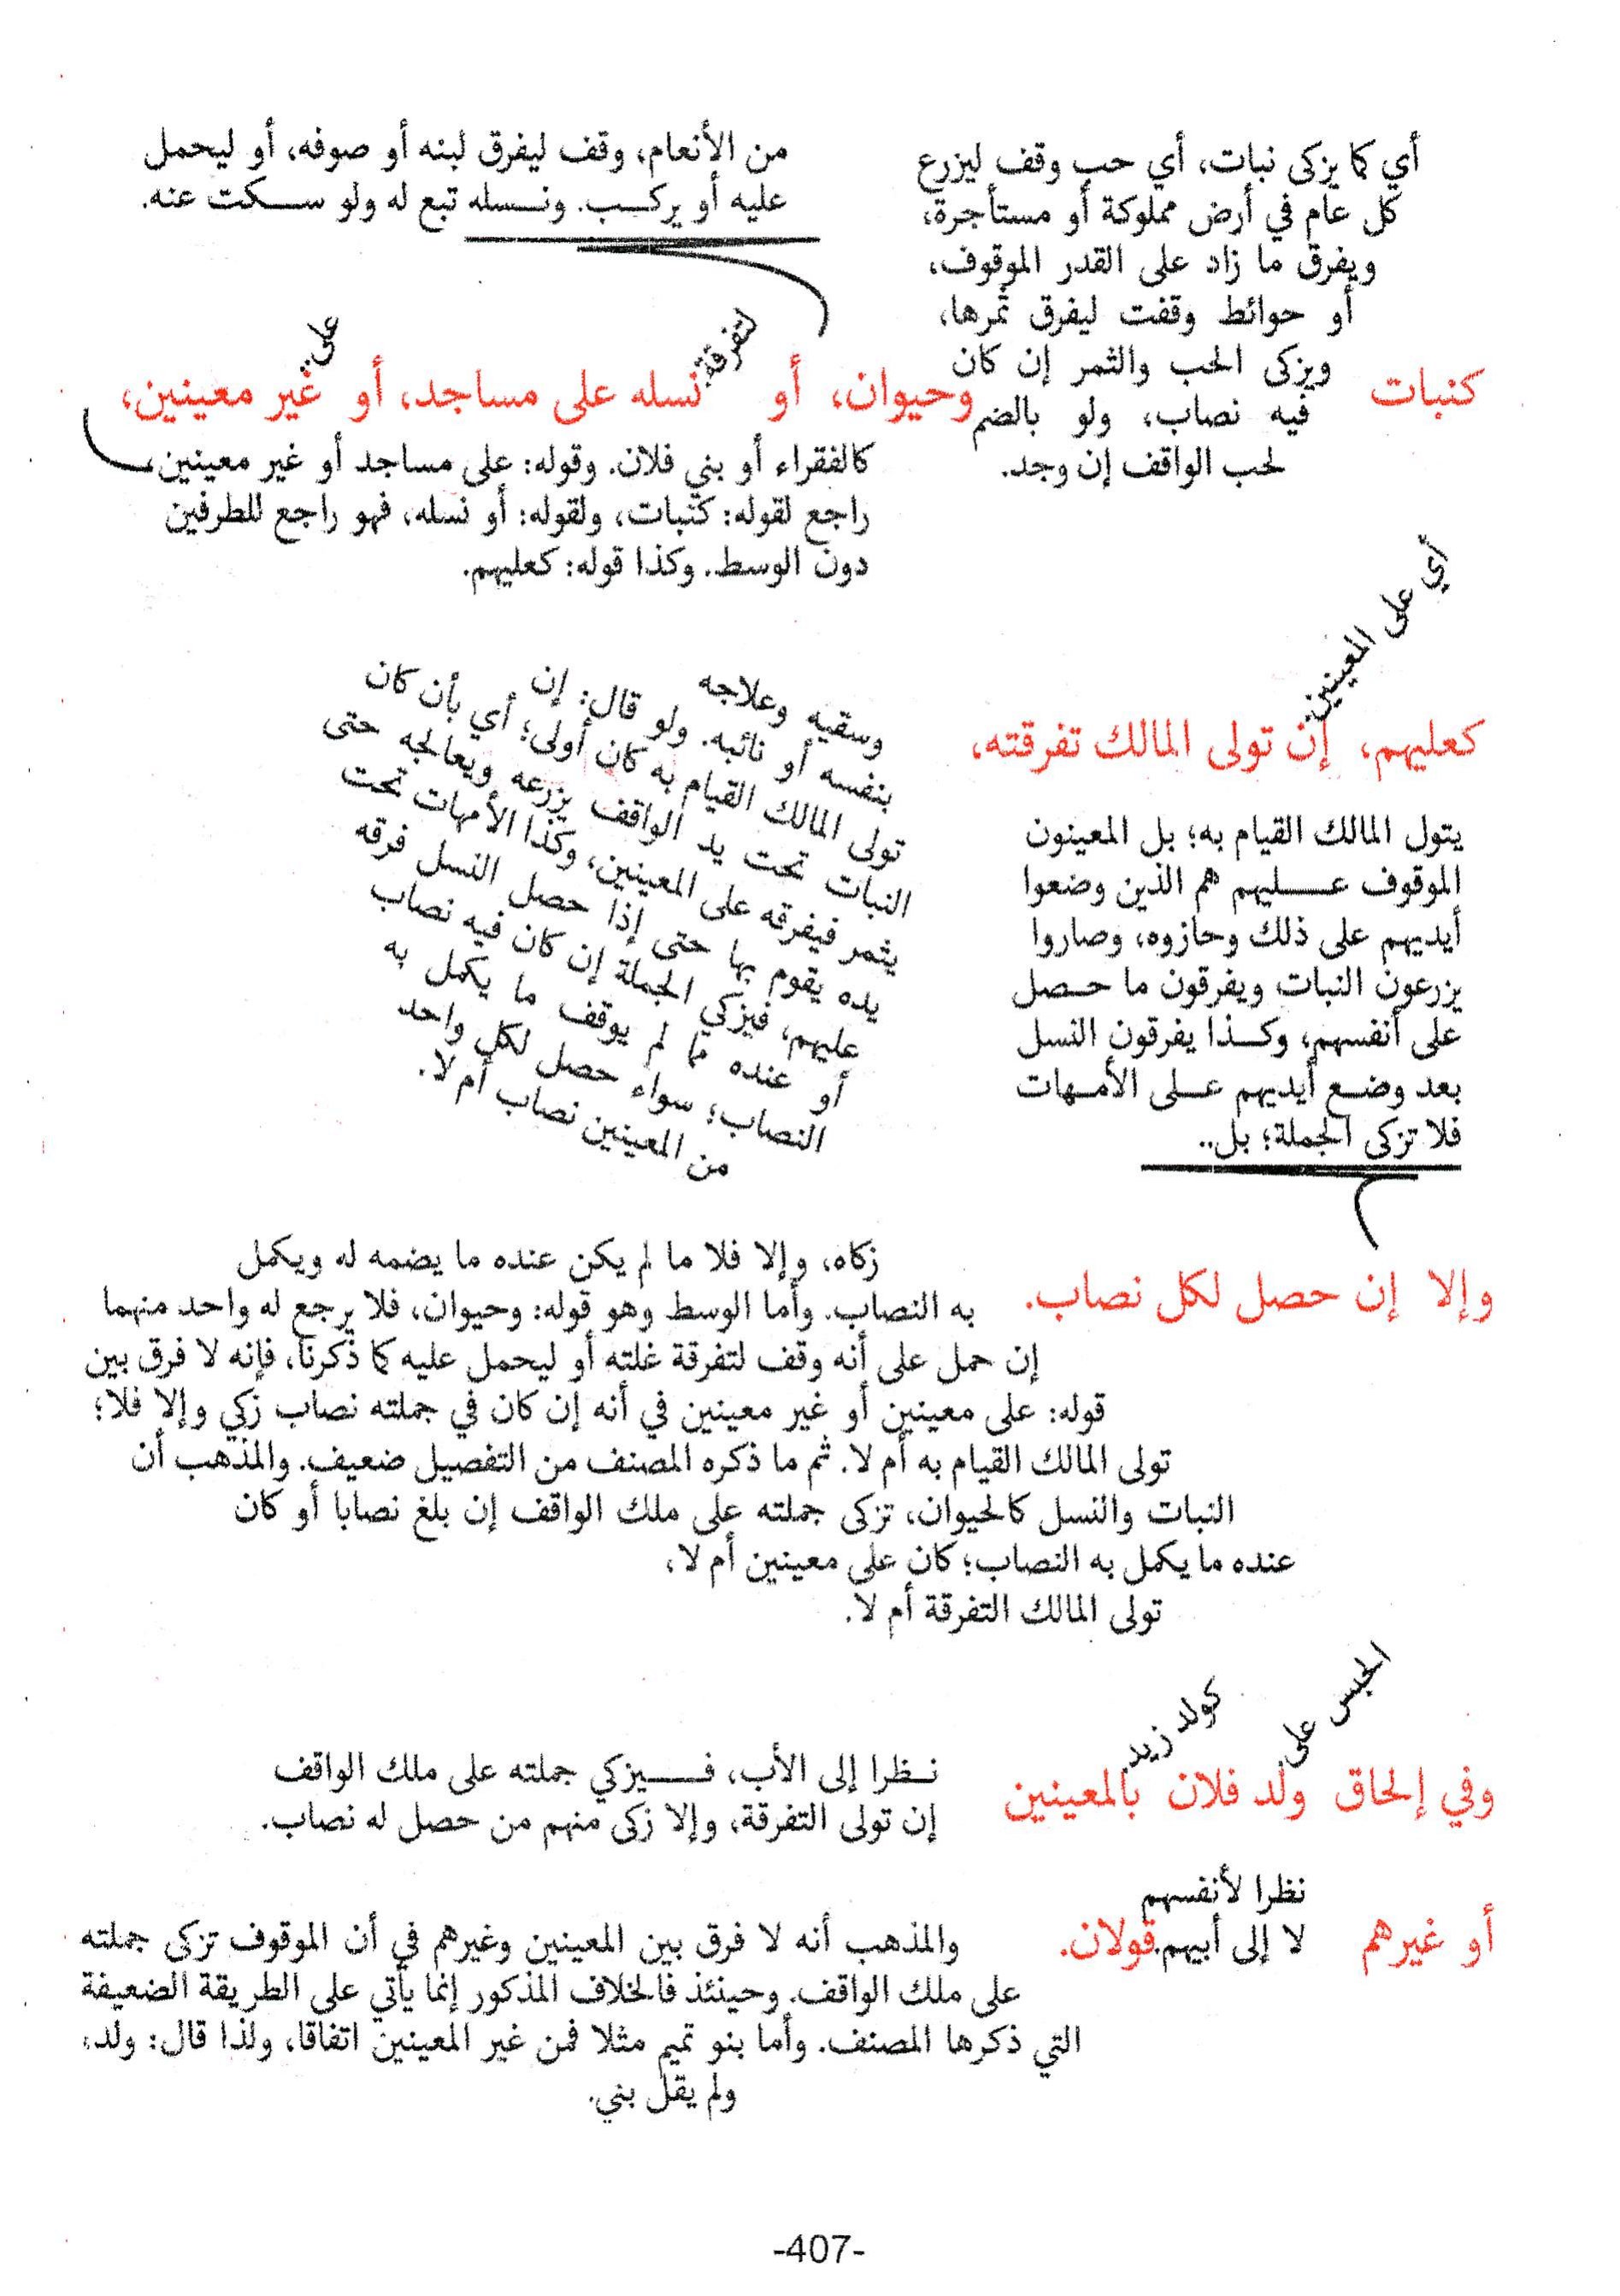 كنبات
أي كما يزكى نبات، أي حب وقف ليزرع
كل عام في أرض مملوكة أو مستأجرة،
ويفرق ما زاد على القدر الموقوف،
أو حوائط وقفت ليفرق ثمرها،
ويزكى الحب والثمر إن كان
فيه نصاب، ولو بالضم
لحب الواقف إن وجد.
وحيوان،
من الأنعام، وقف ليفرق لبنه أو صوفه، أو ليحمل
عليه أو يركب. ونسله تبع له ولو سكت عنه.
أو
لتفرقة.
نسله على مساجد، أو
على..
غير معينين،
كالفقراء أو بني فلان. وقوله: على مساجد أو غير معينين،
راجع لقوله: كنبات، ولقوله: أو نسله، فهو راجع للطرفين
دون الوسط. وكذا قوله: كعليهم.
كعليهم،
أي على المعينين.
إن تولى المالك تفرقته،
وسقيه وعلاجه
بنفسه أو نائبه. ولو قال: إن
تولى المالك القيام به كان أولى؛ أي بأن كان
النبات تحت يد الواقف يزرعه ويعالجه حتى
يثمر فيفرقه على المعينين، وكذا الأمهات تحت
يده يقوم بها حتى إذا حصل النسل فرقه
عليهم، فيزكي الجملة إن كان فيه نصاب
أو عنده مما لم يوقف ما يكمل به
النصاب؛ سواء حصل لكل واحد
من المعينين نصاب أم لا.
وإلا
يتول المالك القيام به؛ بل المعينون
الموقوف عليهم هم الذين وضعوا
أيديهم على ذلك وحازوه، وصاروا
يزرعون النبات ويفرقون ما حصل
على أنفسهم، وكذا يفرقون النسل
بعد وضع أيديهم على الأمهات
فلا تزكى الجملة؛ بل..
إن حصل لكل نصاب.
زكاه، وإلا فلا ما لم يكن عنده ما يضمه له ويكمل
به النصاب. وأما الوسط وهو قوله: وحيوان، فلا يرجع له واحد منهما
إن حمل على أنه وقف لتفرقة غلته أو ليحمل عليه كما ذكرنا، فإنه لا فرق بين
قوله: على معينين أو غير معينين في أنه إن كان في جملته نصاب زكي وإلا فلا؛
تولى المالك القيام به أم لا. ثم ما ذكره المصنف من التفصيل ضعيف. والمذهب أن
النبات والنسل كالحيوان، تزكى جملته على ملك الواقف إن بلغ نصابا أو كان
عنده ما يكمل به النصاب؛ كان على معينين أم لا،
تولى المالك التفرقة أم لا.
وفي إلحاق
الحبس على.
ولد فلان
كولد زيد.
بالمعينين
نظرا إلى الأب، فيزكي جملته على ملك الواقف
إن تولى التفرقة، وإلا زكى منهم من حصل له نصاب.
أو غيرهم
نظرا لأنفسهم
لا إلى أبيهم.
قولان.
والمذهب أنه لا فرق بين المعينين وغيرهم في أن الموقوف تزكى جملته
على ملك الواقف. وحينئذ فالخلاف المذكور إنما يأتي على الطريقة الضعيفة
التي ذكرها المصنف. وأما بنو تميم مثلا فمن غير المعينين اتفاقا، ولذا قال: ولد،
ولم يقل بني.
-407-